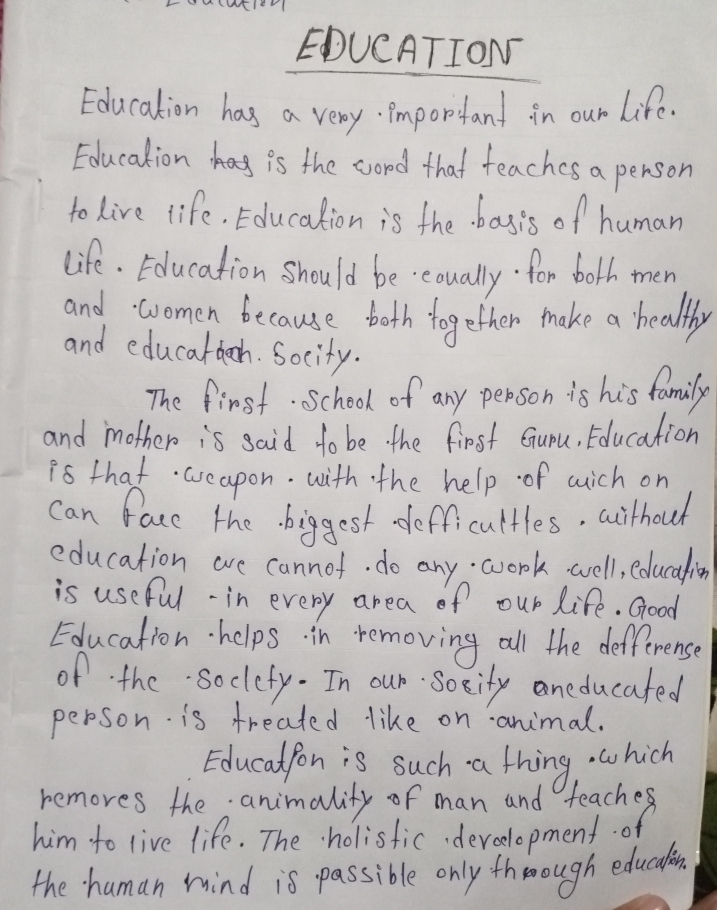 EDUCATION
Education has a very important in our life.
Education has is the word that teaches a person
to live life. Education is the basis of human
life. Education should be eaually for both men
and women because both together make a healthy
and education. Socity.
The first School of any person is his family
and mother is said to be the first Guru. Education
is that weapon. with the help of wich on
Can face the biggest defficultles. without
education we cannot do any work well, education
is useful in every area of our life. Good
Education helps in removing all the defference
of the Society. In our Socity aneducated
person is treated like on animal.
Education is such a thing which
removes the animality of man and teaches
him to live life. The holistic development of
the human mind is passible only through education.